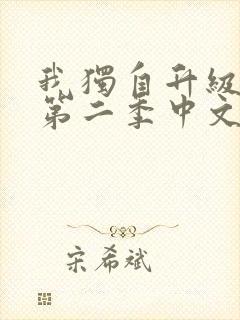 我獨自升級
第二季中文
宋希斌